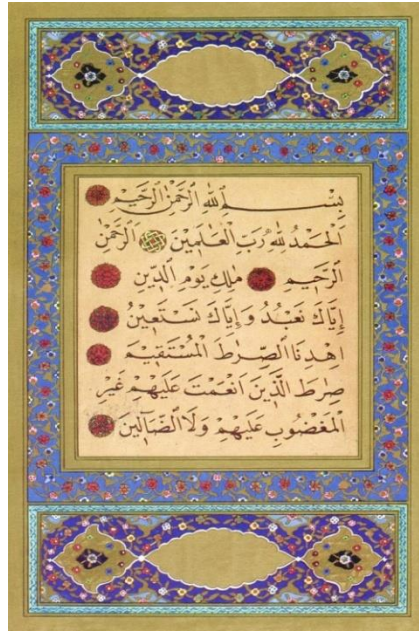 بِسْمِ اللهِ الرَّحْمٰنِ الرَّحِيمِ
اَلْحَمْدُ لِلهِ رَبِّ الْعَالَمِينَ الرَّحْمٰنِ
الرَّحِيمِ مَلِكِ يَوْمِ الدِّينِ
اِيَّاكَ نَعْبُدُ وَاِيَّاكَ نَسْتَعِينُ
اِهْدِنَا الصِّرَاطَ الْمُسْتَقِيمَ
صِرَاطَ الَّذِينَ اَنْعَمْتَ عَلَيْهِمْ غَيْرِ
الْمَغْضُوبِ عَلَيْهِمْ وَلَا الضَّالِّينَ